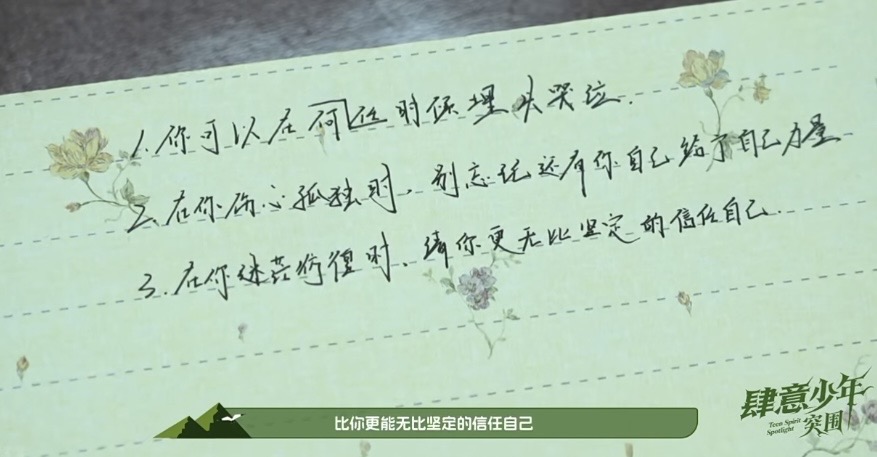 1. 你可以在何任时候埋头哭泣.
2. 在你伤心孤独时，别忘记还有你自己给了自己力量
3. 在你迷茫彷徨时、请你更无比坚定的信任自己.
比你更能无比坚定的信任自己
肆意少年
Teen Spirit
Spotlight
突围